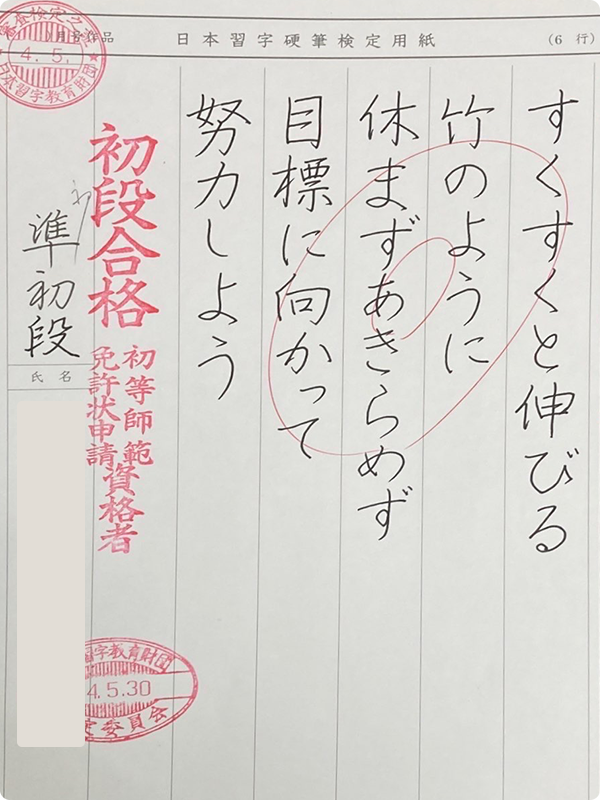 日本習字硬筆検定用紙
（6 行）
月号作品
すくすくと伸びる
竹のように
休まずあきらめず
目標に向かって
努力しよう
初段合格
初等師範
免許状申請
資格者
準初段
氏名
審査検定之
4.5.
日本習字教育財団
習字教育財団
4.5.30
定委員会